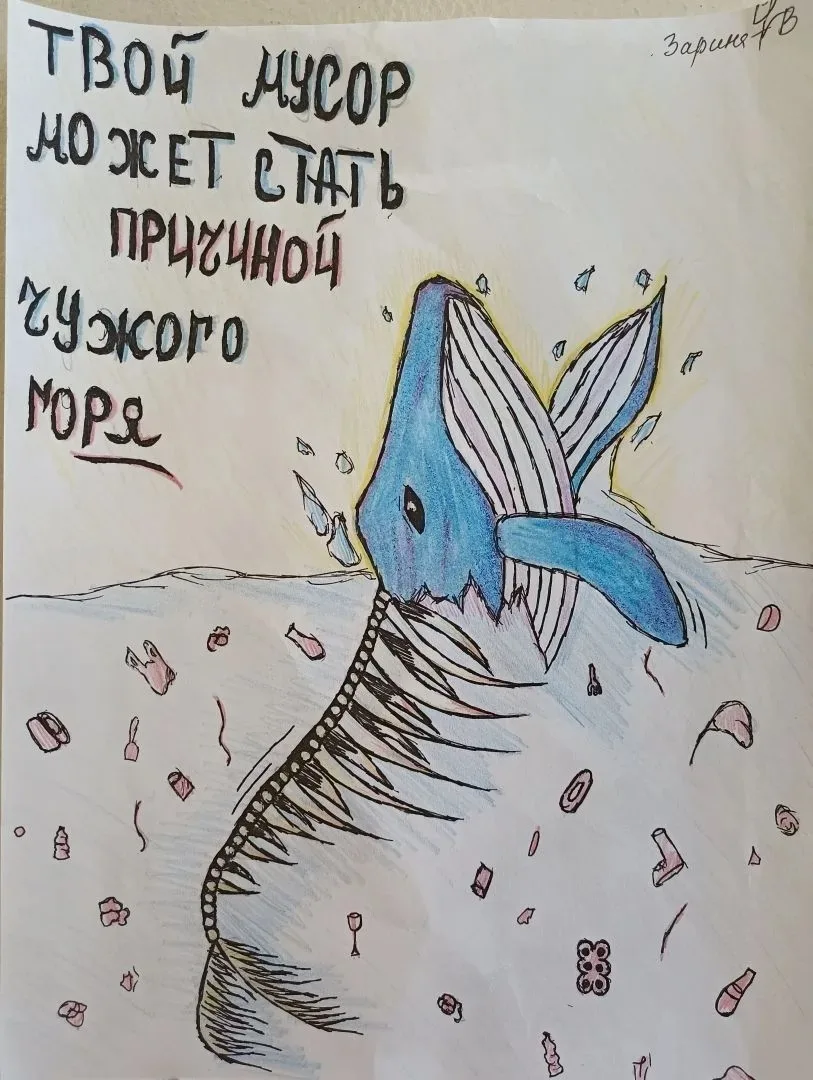 Зарина
ТВОЙ МУСОР
МОЖЕТ СТАТЬ
ПРИЧИНОЙ
ЧУЖОГО
ГОРЯ